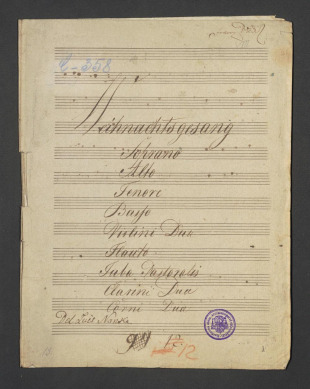 C-358
Weihnachtsgesang
Soprano
Alto
Tenore
Basso
Violini Duo
Flauto
Tuba Pastoralis
Clarini Duo
Corni Duo
12